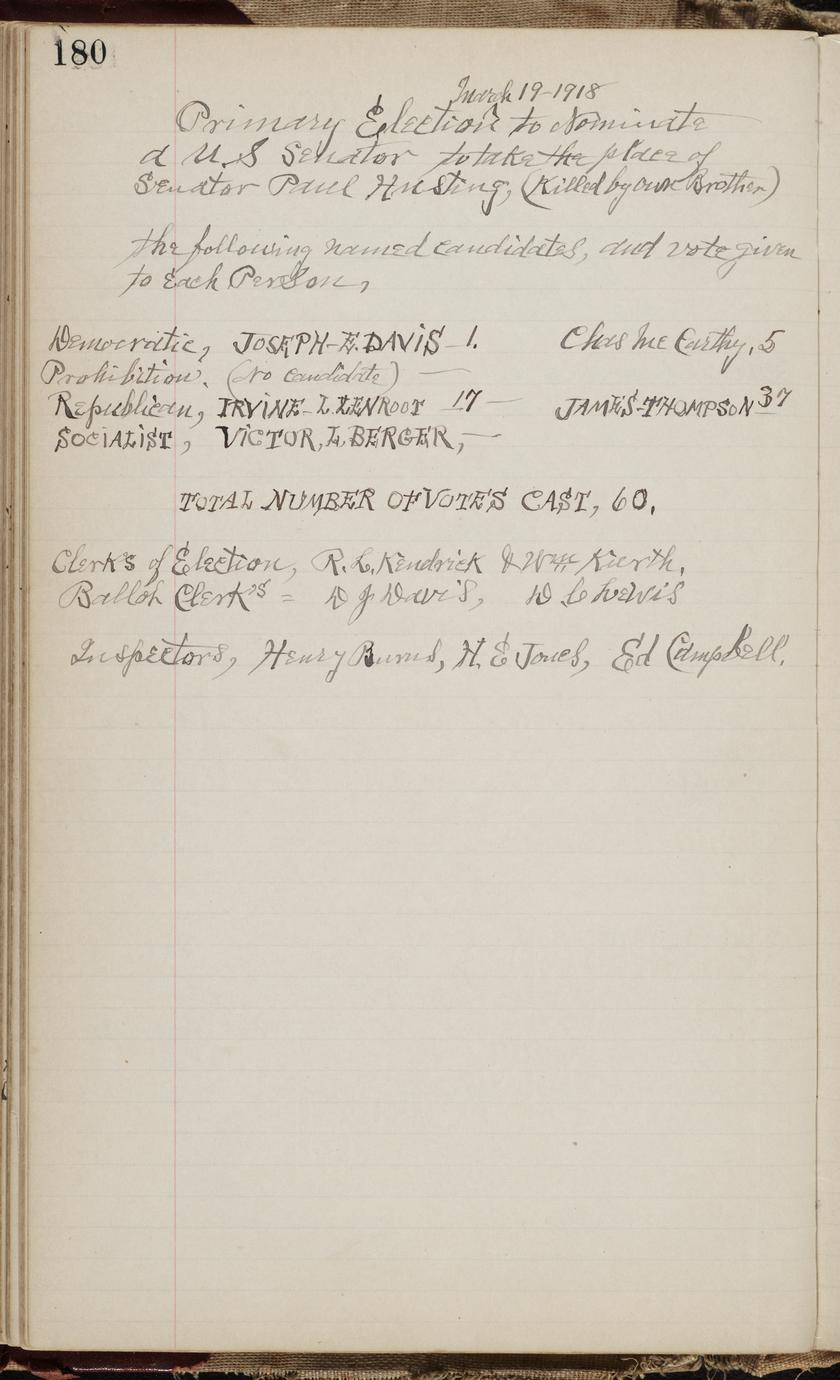 180
March 19-1918
Primary Election to Nominate
a U.S Senator to take the place of
Senator Paul Husting, (Killed by own Brother)
the following named candidates, and vote given
to Each Person,
Democratic, JOSEPH-E. DAVIS - 1. Chas Mc Carthy, 5
Prohibition. (No candidate) —
Republican, IRVINE-L. LENROOT 17 — JAMES-THOMPSON 37
SOCIALIST, VICTOR, L BERGER, —
TOTAL NUMBER OF VOTES CAST, 60.
Clerk's of Election, R. L. Kendrick & Wm Kurth,
Ballot Clerk's = D J Davis, D C Lewis
Inspectors, Henry Burns, H. E Jones, Ed Campbell.